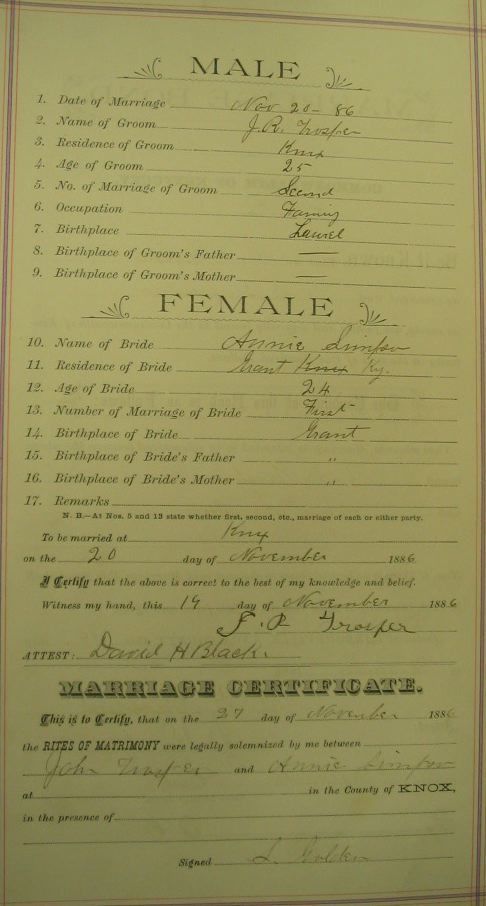 MALE
1. Date of Marriage Nov 20 - 86
2. Name of Groom J.R. Trosper
3. Residence of Groom Knox
4. Age of Groom 25
5. No. of Marriage of Groom Second
6. Occupation Faming
7. Birthplace Laurel
8. Birthplace of Groom's Father —
9. Birthplace of Groom's Mother —
FEMALE
10. Name of Bride Annie Simpson
11. Residence of Bride Grant Knox Ky.
12. Age of Bride 24
13. Number of Marriage of Bride First
14. Birthplace of Bride Grant
15. Birthplace of Bride's Father "
16. Birthplace of Bride's Mother "
17. Remarks
N. B.—At Nos. 5 and 13 state whether first, second, etc., marriage of each or either party.
To be married at Knox
on the 20 day of November 1886
I Certify that the above is correct to the best of my knowledge and belief.
Witness my hand, this 19 day of November 1886
J. R Trosper
ATTEST: David H Black.
MARRIAGE CERTIFICATE.
This is to Certify, that on the 27 day of November 1886
the RITES OF MATRIMONY were legally solemnized by me between
John Trosper and Annie Simpson
at in the County of KNOX,
in the presence of
Signed Golden